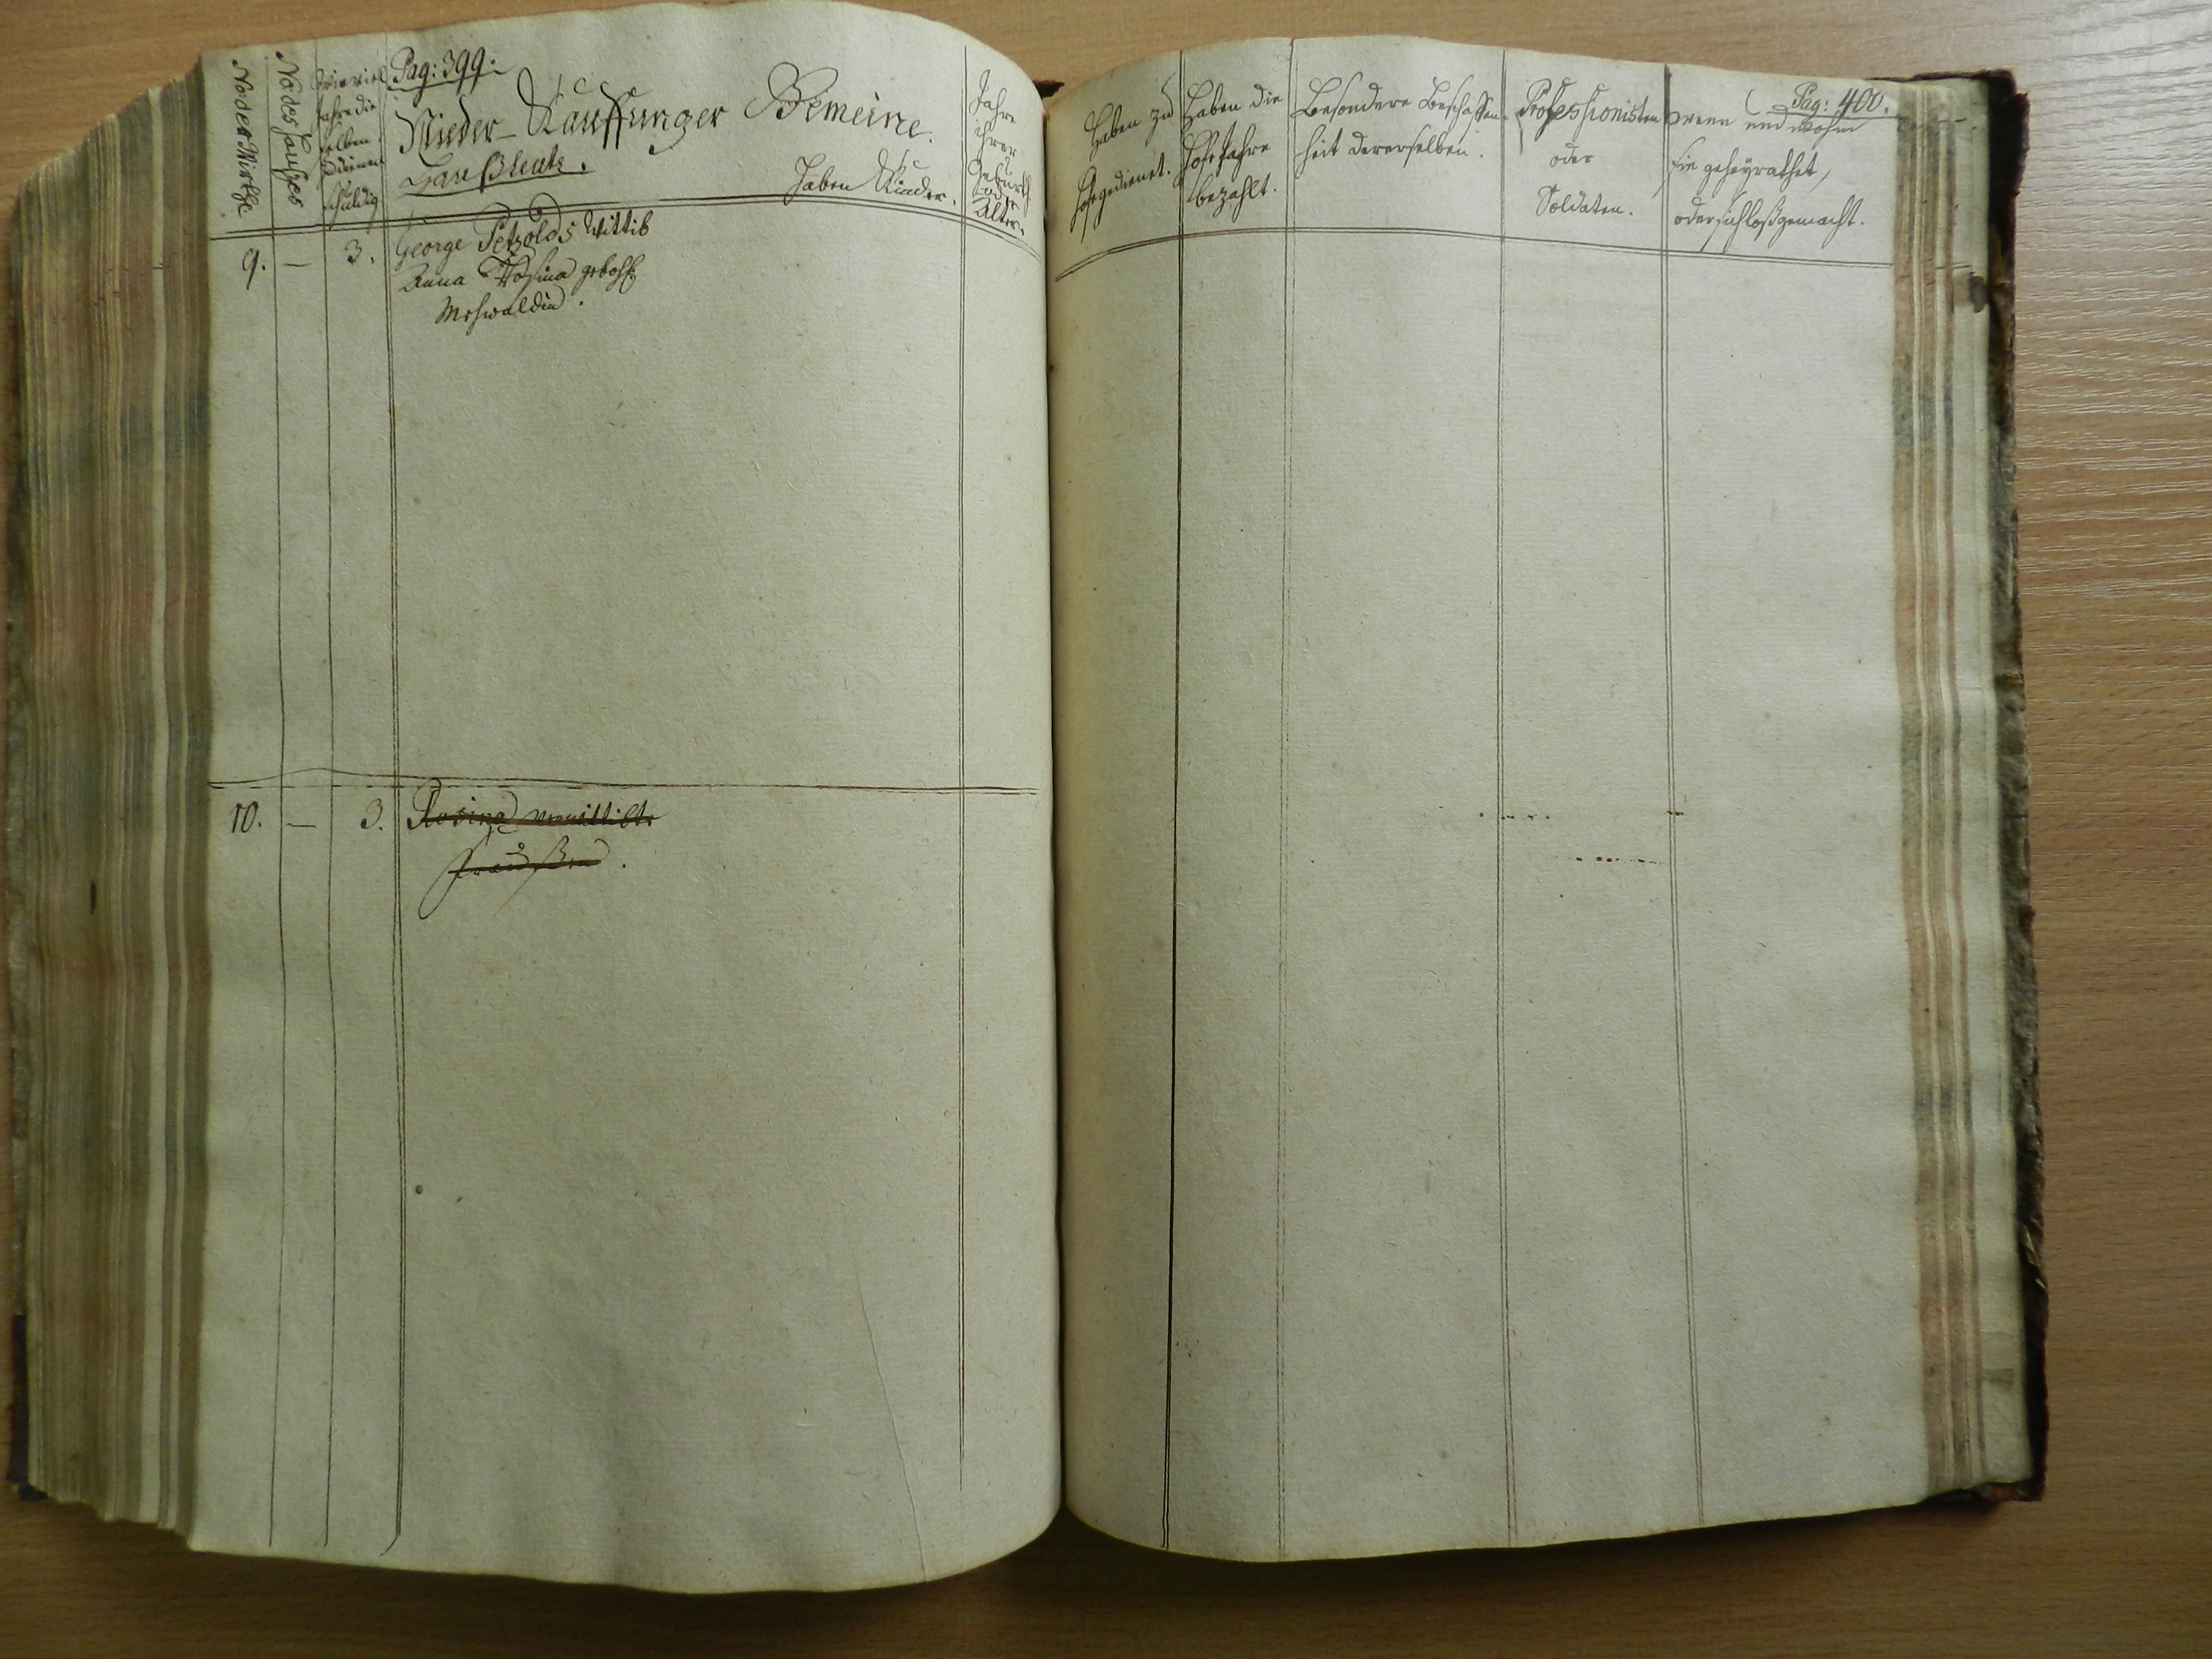 Pag: 399.
No: der Wirthe
No: des Haußes
Wie viel
Jahre die
selben
zu dienen
schuldig
Nieder-Kauffunger Gemeine.
Haußleute.
Haben Kinder.
Jahre
ihrer
Geburth
oder
Alter.
9. — 3. George Petzolds Wittib
Anna Rosina gebohr.
10. — 3. Rosina verwittibte
Pag: 400.
Haben zu
Hofe gedienet.
Haben die
Hofe Jahre
bezahlt.
Besondere Beschaffen-
heit dererselben.
Professionisten
oder
Soldaten.
wenn und wohin
sie geheyrathet,
oder sich loßgemacht.